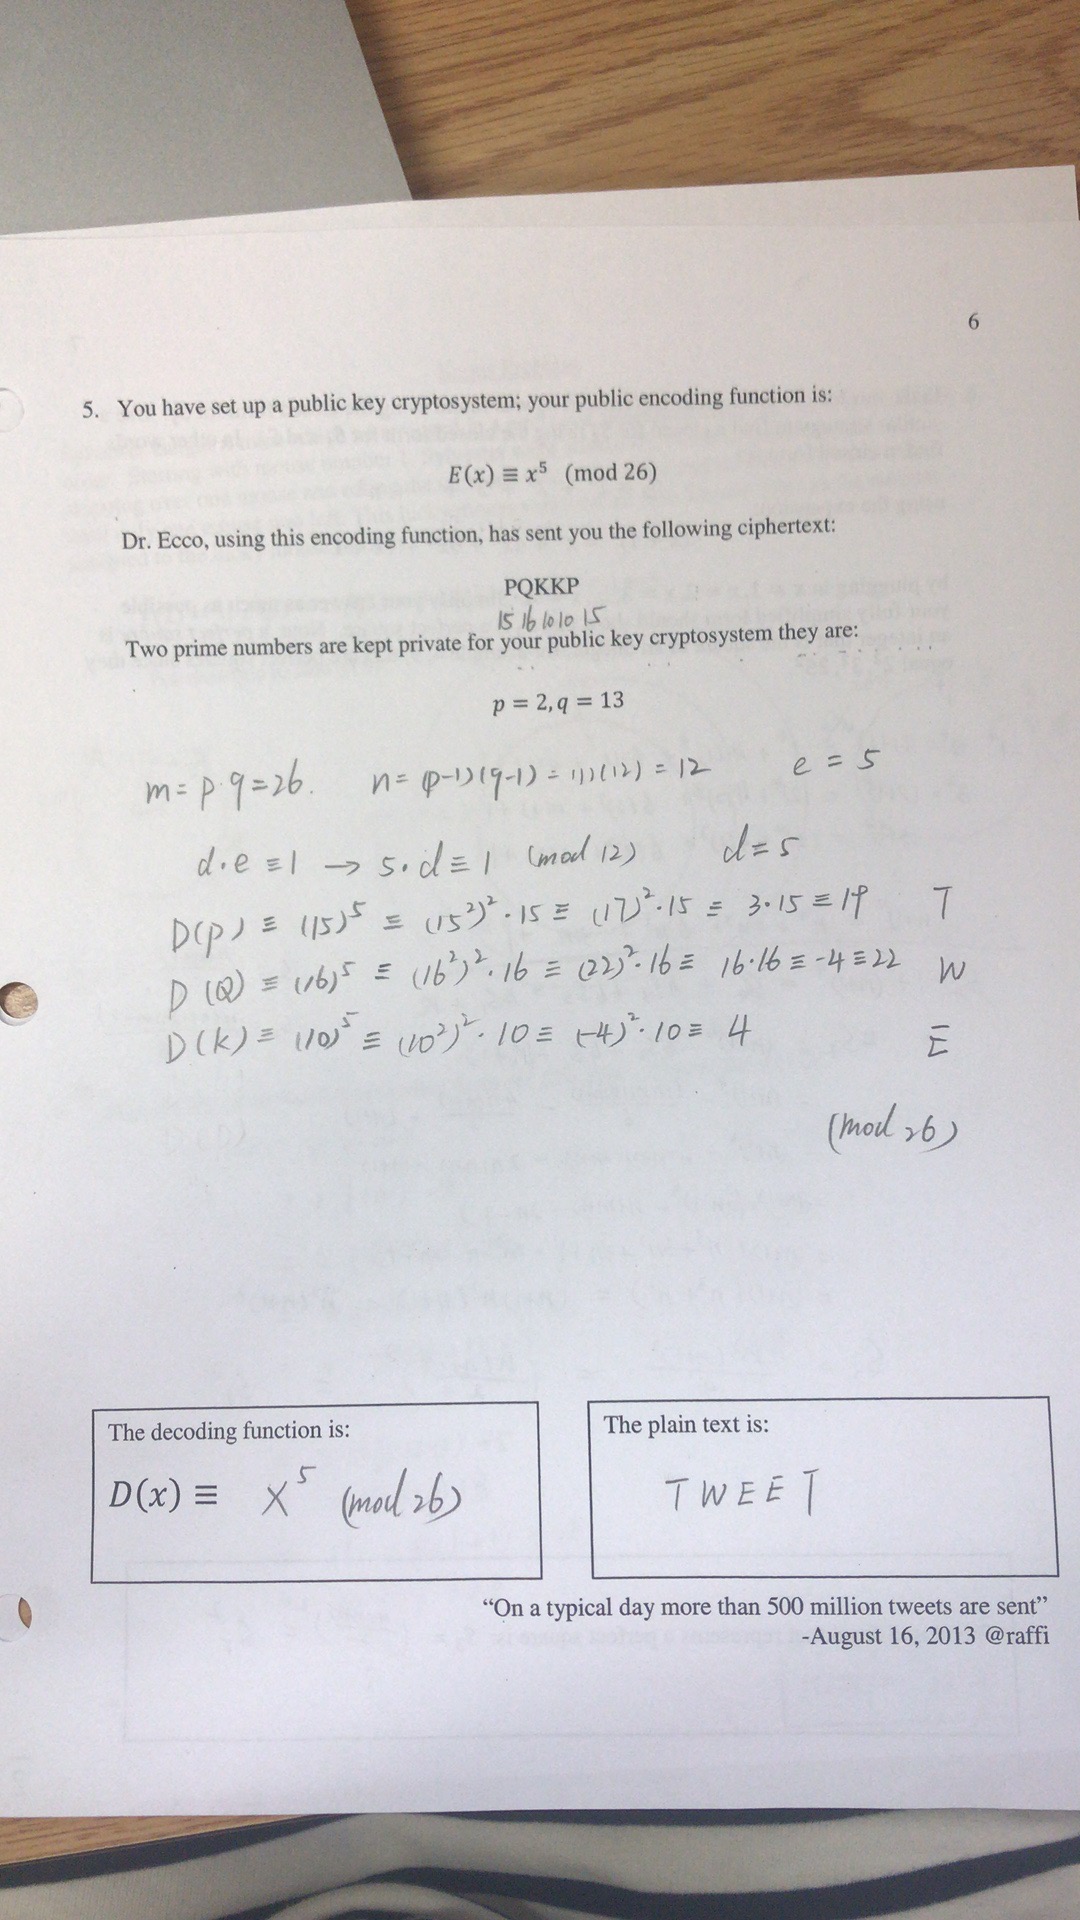 6
5. You have set up a public key cryptosystem; your public encoding function is:
E(x) ≡ x⁵ (mod 26)
Dr. Ecco, using this encoding function, has sent you the following ciphertext:
PQKKP
15 16 10 10 15
Two prime numbers are kept private for your public key cryptosystem they are:
p = 2, q = 13
m = p·q = 26. n = (p-1)(q-1) = (1)(12) = 12 e = 5
d·e ≡ 1 → 5·d ≡ 1 (mod 12) d = 5
D(p) ≡ (15)⁵ ≡ (15²)²·15 ≡ (17)²·15 ≡ 3·15 ≡ 19 T
D(Q) ≡ (16)⁵ ≡ (16²)²·16 ≡ (22)²·16 ≡ 16·16 ≡ -4 ≡ 22 W
D(k) ≡ (10)⁵ ≡ (10²)²·10 ≡ (-4)²·10 ≡ 4 E
(mod 26)
The decoding function is:
D(x) ≡ x⁵ (mod 26)
The plain text is:
TWEET
“On a typical day more than 500 million tweets are sent”
-August 16, 2013 @raffi